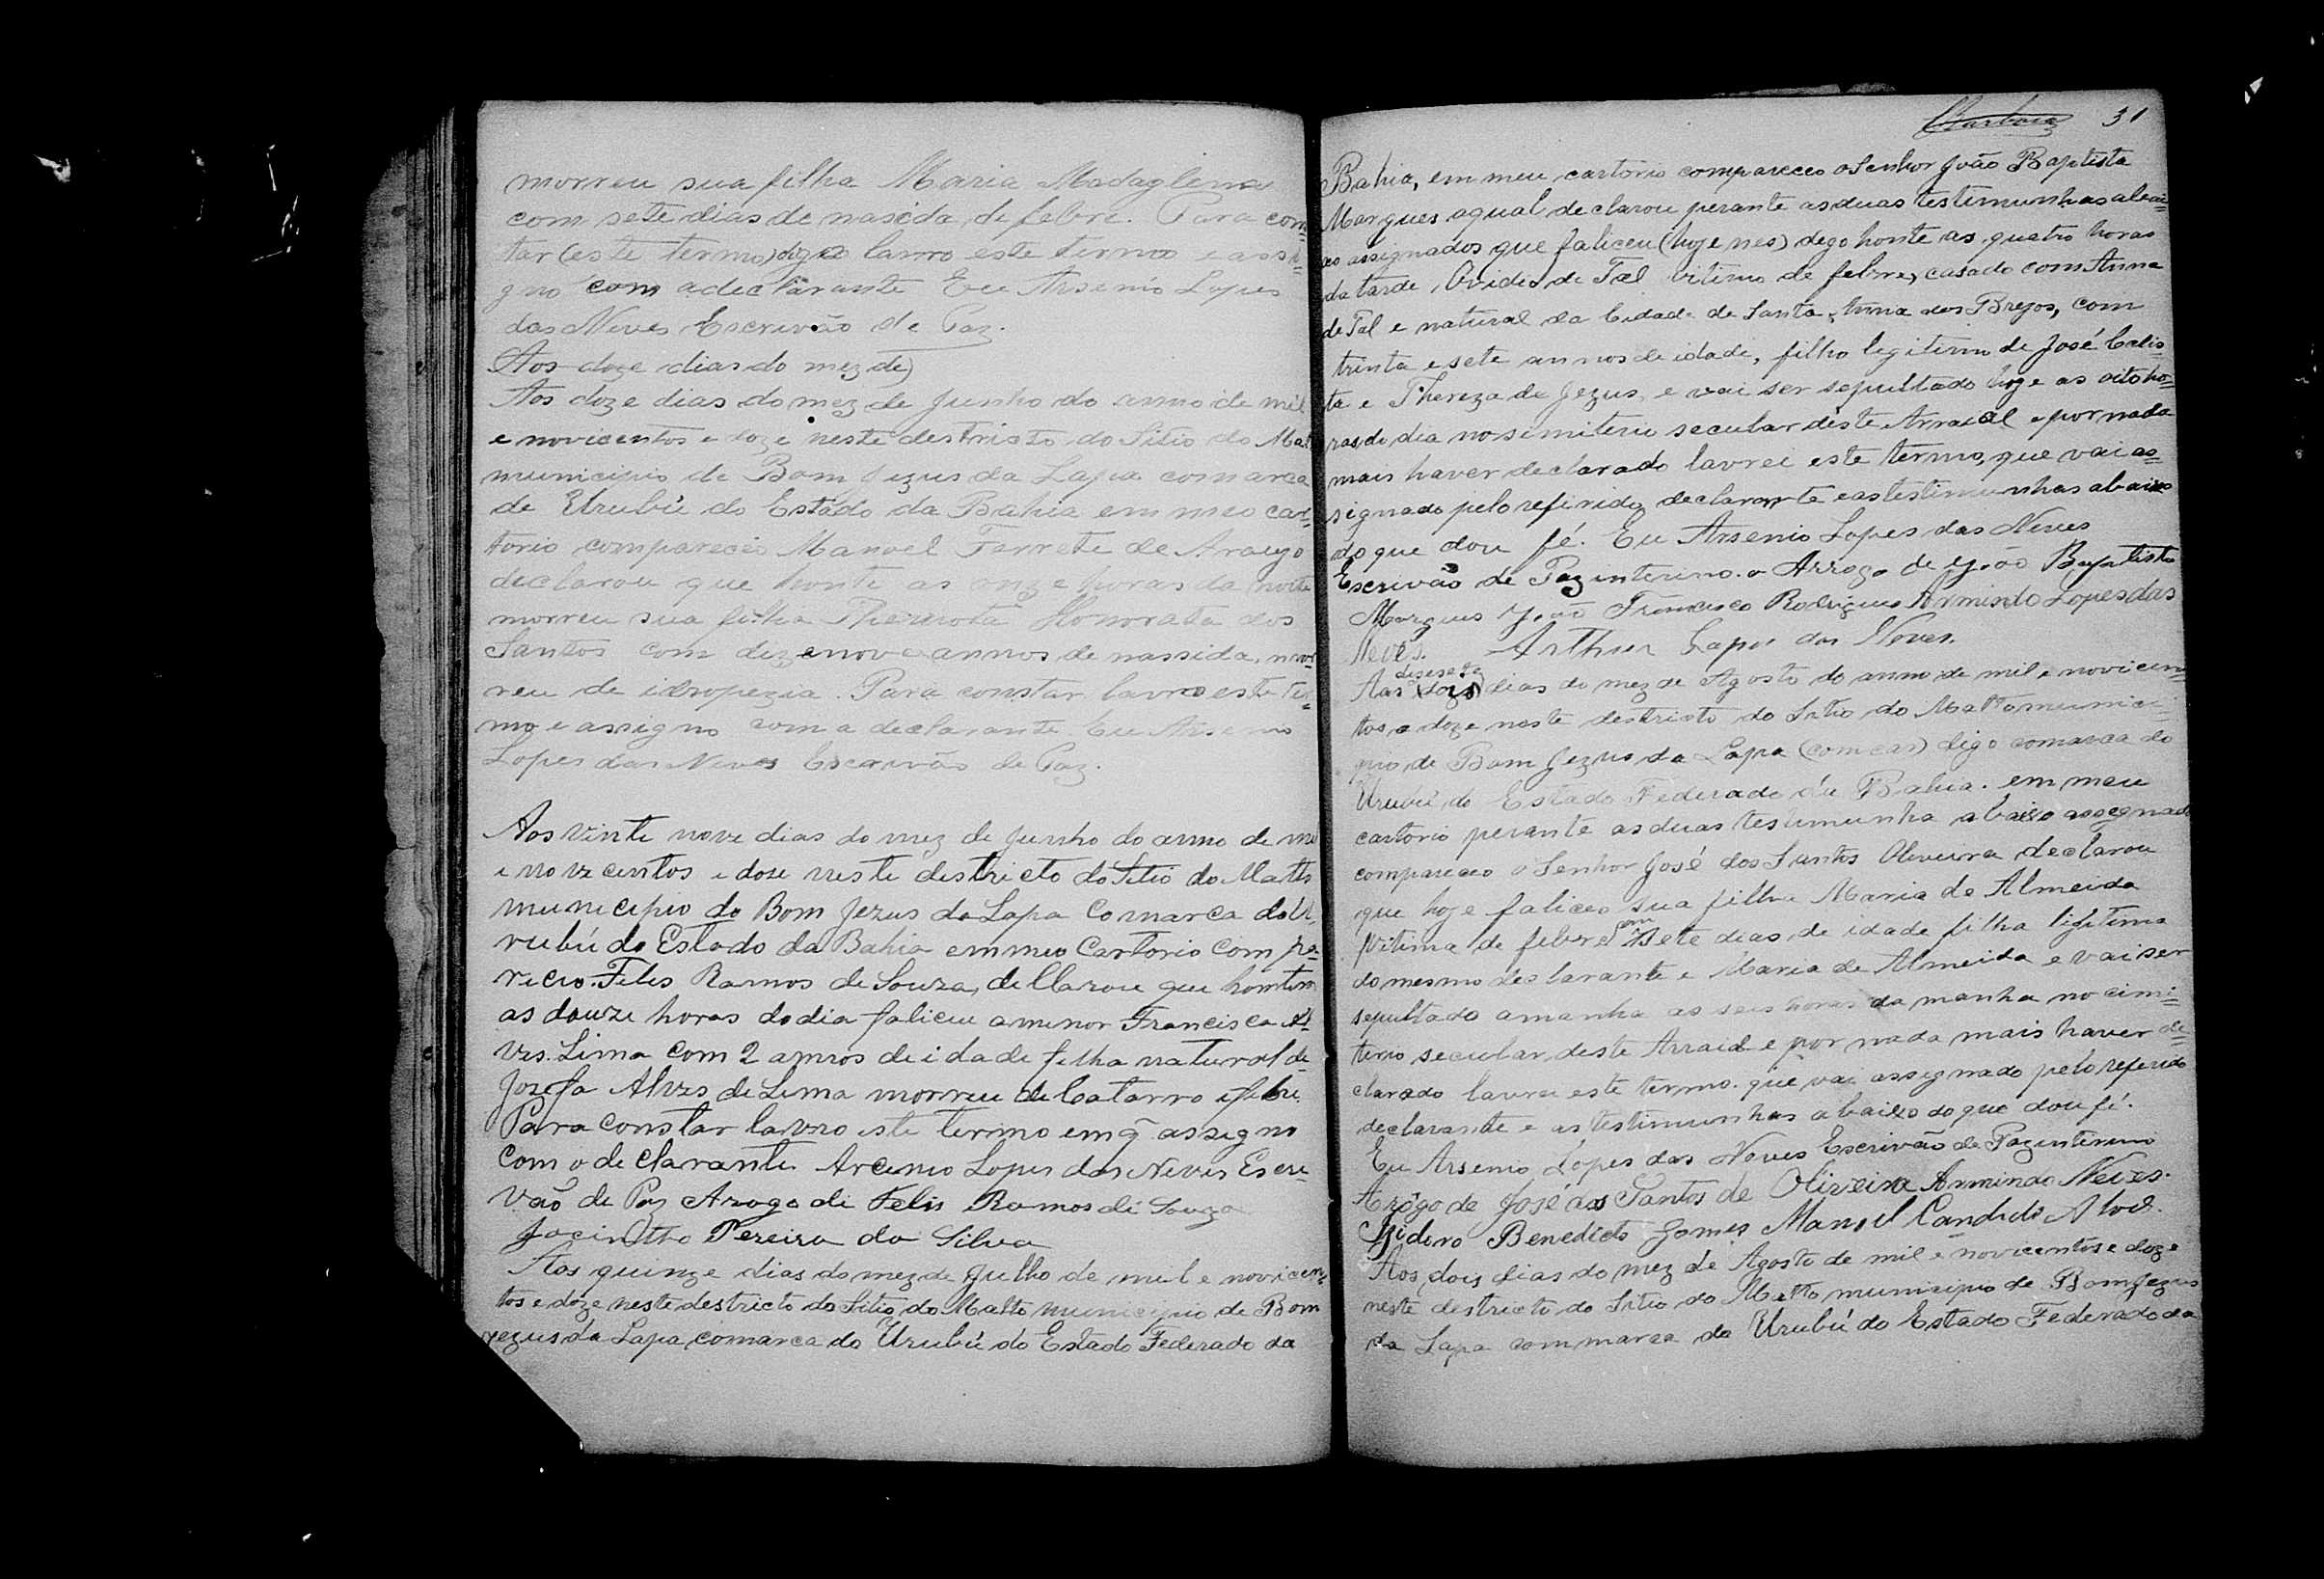 morreu sua filha Maria Madaglena
com sete dias de nascida, de febre. Para cons=
tar (este termo) digo lavro este termo e assi=
gno com a declarante Eu Arsenio Lopes
das Neves Escrivão de Paz.
Aos doze dias do mez de)
Aos doze dias do mez de Junho do anno de mil
e novicentos e doze neste destricto do Sitio do Mat
municipio de Bom Jezus da Lapa comarca
de Urubú do Estado da Bahia em meo car=
torio compareceo Manoel Ferrete de Araujo
declarou que honte as onze horas da noite
morreu sua filha Honorata dos
Santos com dezenove annos de nassida, mor=
reu de idropezia. Para constar lavro este ter=
mo e assigno com a declarante Eu Arsenio
Lopes das Neves Escrivão de Paz.
Aos vinte nove dias do mez de Junho do anno de mil
e novecentos e dose neste destricto do Sitio do Matto
municipio do Bom Jezus da Lapa Comarca do U.
rubú do Estado da Bahia em meo Cartorio com pa=
receo Felis Ramos de Souza, dellarou que hontem
as douze horas do dia faliceu a menor Francisca Al
ves. Lima com 2 annos de idade filha natural de
Jozefa Alves de Lima morreu de Catarro e febre.
Para constar lavro este termo em q̃ assigno
com o declarante Arcenio Lopes das Neves Escri=
vaõ de Paz Arogo de Felis Ramos de Souza
Jacintho Pereira da Silva
Aos quinze dias do mez de Julho de mil e novicen=
tos e doze neste destricto do Sitio do Matto municipio de Bom
Jezus da Lapa, comarca do Urubú do Estado Federado da
31
Bahia, em meu cartorio compareceo o Senhor João Baptista
Marques aqual declarou perante as duas testimunhas abai=
xo assignados que faliceu (hoje nes) dego honte as quatro horas
da tarde, Ovidio de Tal vitimo de febre, casado com Anna
de Tal e natural da Cidade de Santa Anna dos Brejos, com
trinta e sete annos de idade, filho legitimo de José Calis=
to e Thereza de Jezus, e vai ser sepultado hoje as oito ho=
ras do dia no simiterio secular deste Arraial e por nada
mais haver declarado lavrei este termo, que vai as=
signado pelo referido declarante e as testimunhas abaixo
do que dou fé. Eu Arsenio Lopes das Neves
Escrivão de Paz interino. a Arrogo de João Baptista
Marques João Francisco Rodrigues Armindo Lopes das
Neves. Arthur Lopes das Neves.
disesete
Aos (dois) dias do mez de Agosto do anno de mil e novicen=
tos e doze neste destricto do Sitio do Matto munici=
pio de Bom Jezus da Lapa (comcar) digo comarca do
Urubú do Estado Federado da Bahia. em meu
cartorio perante as duas testimunha abaixo assegnado
compareceo o Senhor José dos Santos Oliveira declarou
que hoje faliceo sua filha Maria de Almeida
vitima de febre com sete dias de idade filha ligitima
do mesmo declarante e Maria de Almeida e vai ser
sepultado amanha as seis horas da manha no cimi=
terio secular, deste Arraial e por nada mais haver de=
clarado lavrei este termo. que vai assignado pelo referido
declarante e as testimunhas abaixo do que dou fé.
Eu Arsenio Lopes das Neves Escrivão de Paz interino
Arôgo de José dos Santos de Oliveira Armindo Neves.
Izidoro Benedicto Gomes Manoel Candido Alves.
Aos, dois dias do mez de Agosto de mil e novicentos e doze
neste destricto do Sitio do Matto municipio de Bom Jezus
da Lapa commarca do Urubú do Estado Federado da